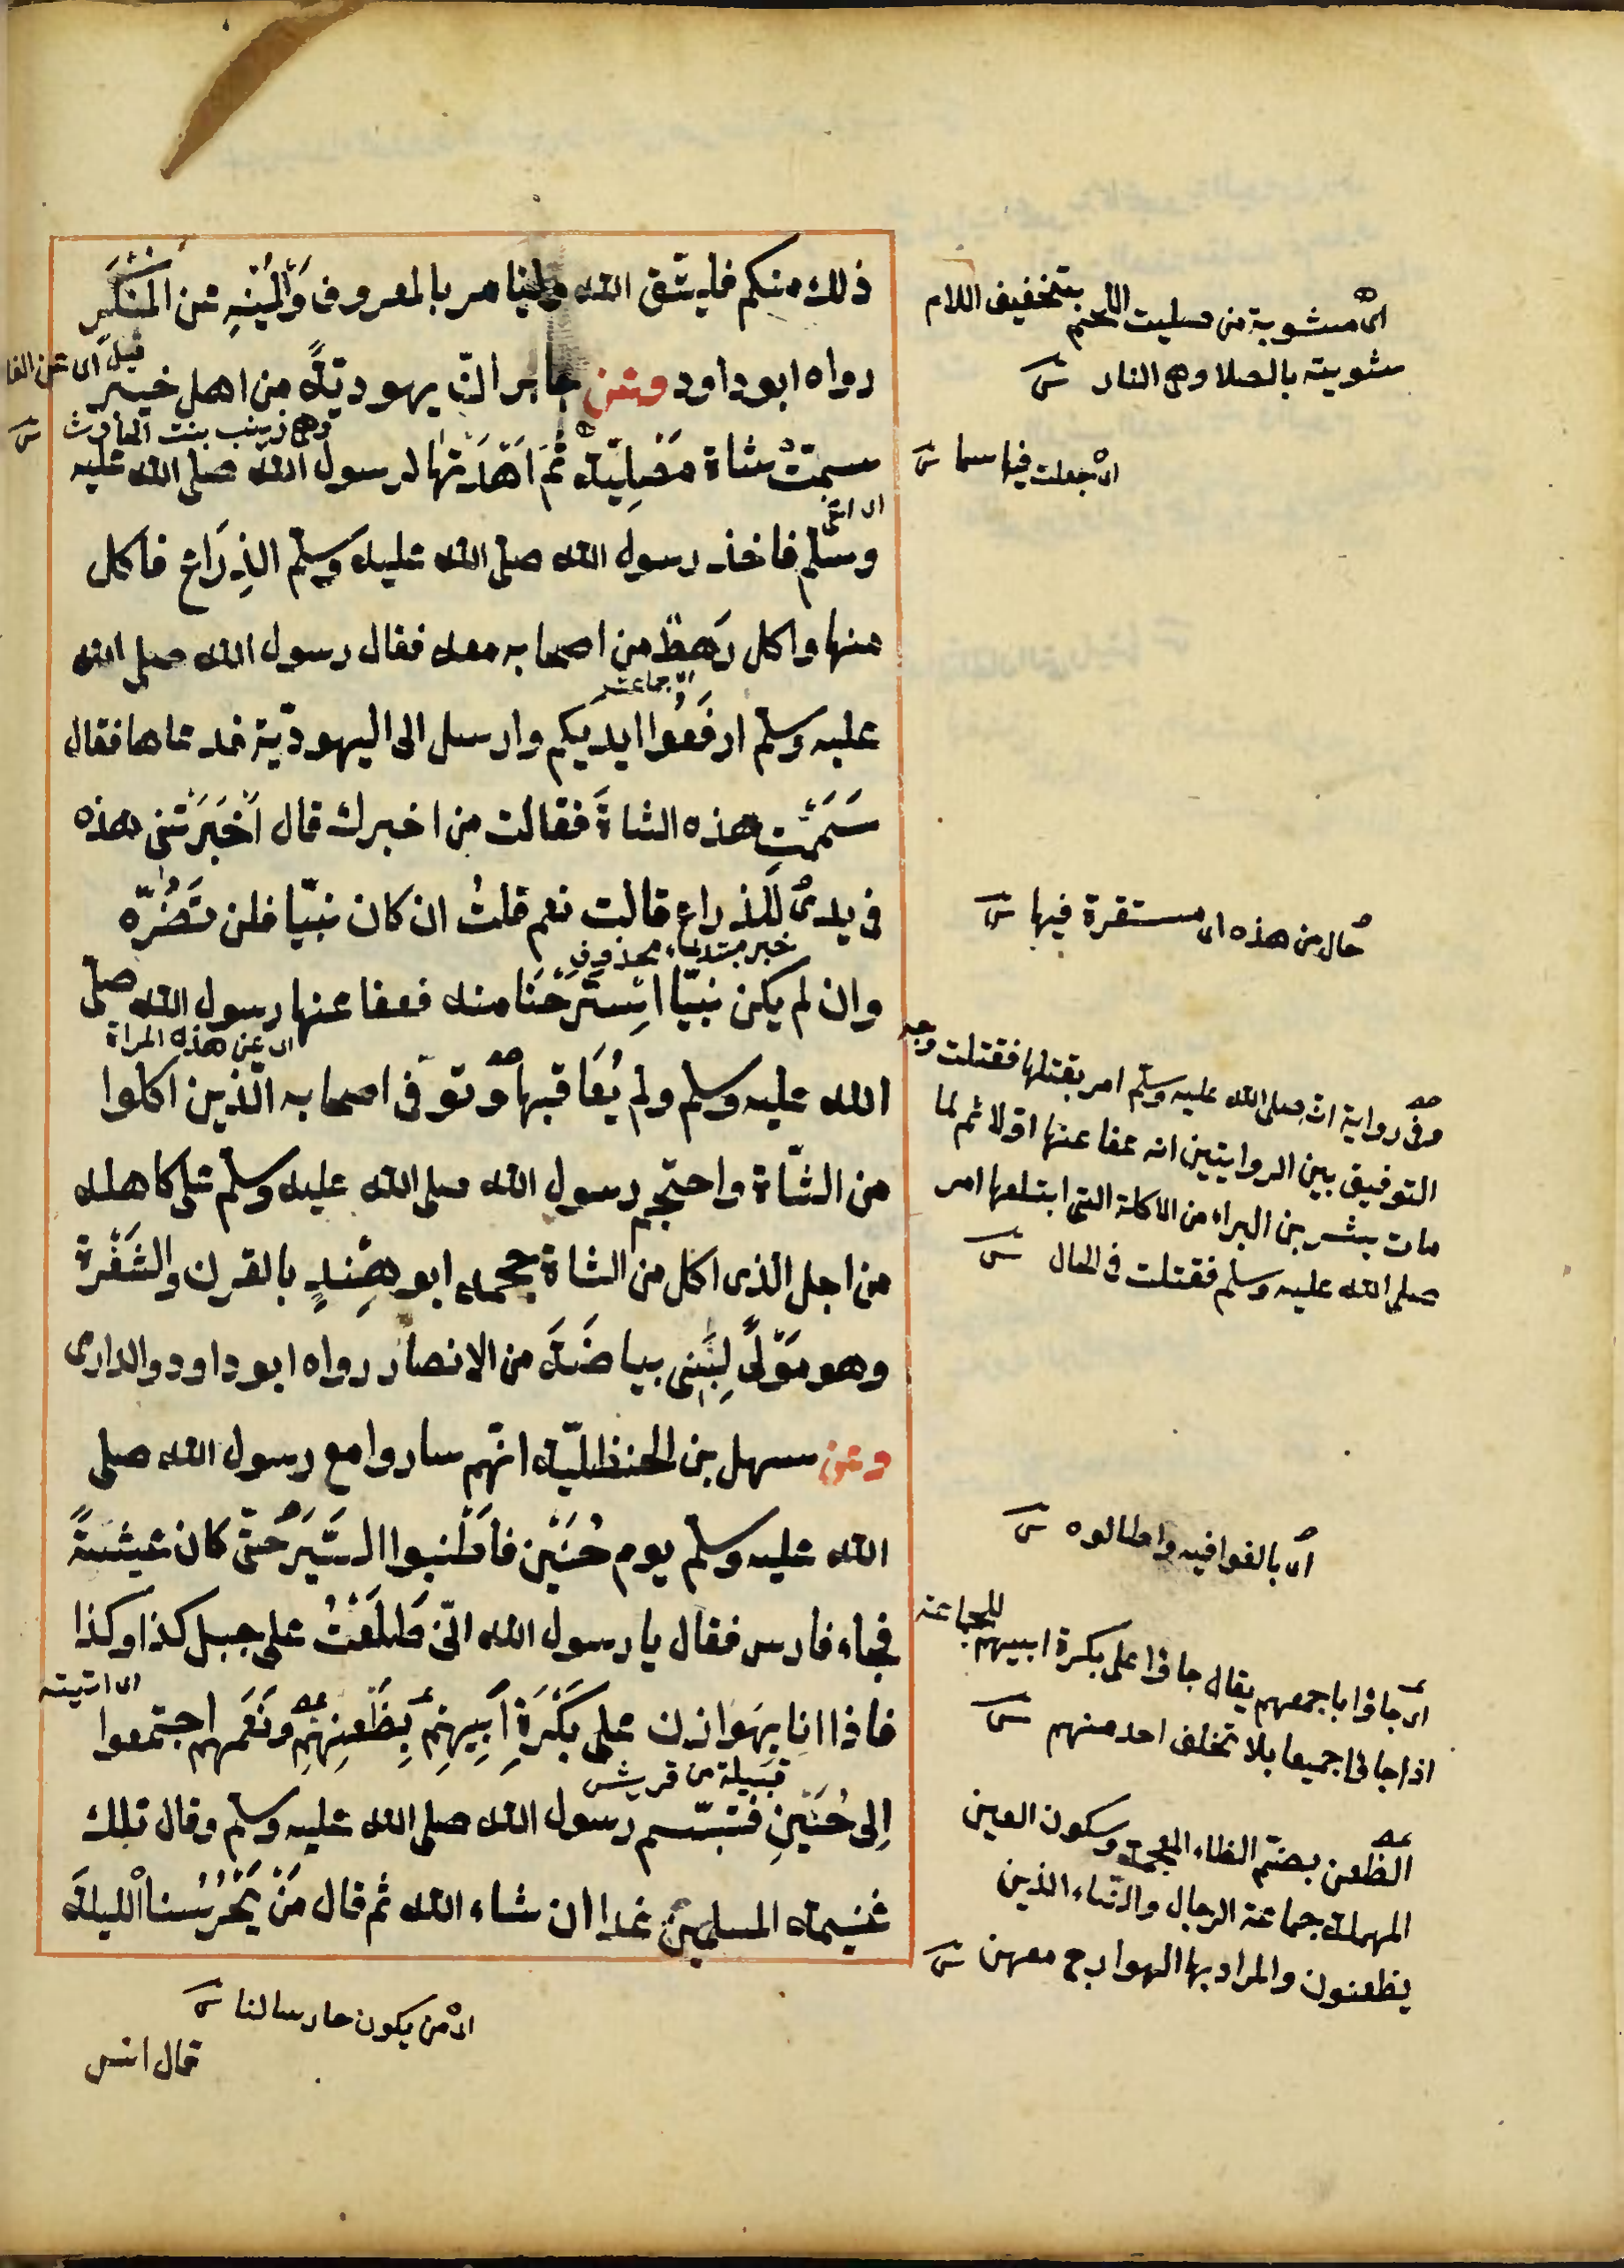 ذلك منكم فليتّق الله وليأمر بالمعروف وَلْيَنْهِ عن الْمُنْكَرِ
رواه ابو داود وعن جابر انّ يهوديّةً من اهل خيبر
وهي زينب بنت الحارث
سمّتْ شاة مَصْلِيّة ثُمَ اَهْدَتْها لرسول الله صلى الله عليه
وسلم فاخذ رسول الله صلى الله عليه وسلم الذِرَاع فاكل
منها واكل رَهطٌ من اصحابه معه فقال رسول الله صلى الله
اى جماعة
عليه وسلم ارفَعُوا ايديكم وارسل الى اليهوديّة فدعاها فقال
سَمَمْتِ هذه الشاةَ فقالت من اخبرك قال اَخْبَرَتْنى هذه
فى يدى لِلذراع قالت نعم قلتُ ان كان نبيّا فلن تَضُرّه
خبر مبتداء محذوف
وان لم يكن نبيّا اسْتَرَحْنَا منه فعفا عنها رسول الله صلى
اى عن هذه المراة
الله عليه وسلم ولم يُعَاقبها وتوفّى اصحابه الّذين اكلوا
من الشّاة واحتجم رسول الله صلى الله عليه وسلم على كاهله
من اجل الّذى اكل من الشاة حجمه ابو هِنْدٍ بالقرن والشَفْرة
وهو مَوْلًى لِبَنِى بياضَةَ من الانصار رواه ابو داود والدارى
وعن سهل بن الحنظليّة انّهم ساروا مع رسول الله صلى
الله عليه وسلم يوم حُنَيْن فاَطْنبوا السَّيْرَ حتّى كان عشيّةً
فجاء فارس فقال يا رسول الله انّى طَلَعْتُ على جبل كذا وكذا
اى اتيته
فاذا انا بِهَوَازن على بَكْرَةِ اَبِيهِمْ بِظُعنِهِم وَنَعَمهم اجتمعوا
قبيلة من قريش
اِلى حُنَيْنٍ فتبسّم رسول الله صلى الله عليه وسلم وقال تلك
غنيمة المسلمين غدا ان شاء الله ثم قال مَنْ يَحْرُسُنا الليلة
اى من يكون حارسا لنا
قال انس
اى مشوية من صليت اللحم بتخفيف اللام
شويته بالصلا وهى النار
اى جعلت فيها سما
حال من هذه اى مستقرة فيها
وفى رواية انه صلى الله عليه وسلم امر بقتلها فقتلت وجه
التوفيق بين الروايتين انه عفا عنها اوّلا ثم لما
مات بشر بن البراء من الاكلة التى ابتلعها امر
صلى الله عليه وسلم فقتلت فى الحال
اى بالغوا فيه واطالوه
اى جاؤا باجمعهم يقال جاؤا على بكرة ابيهم للجماعة
اذا جاؤا جميعا بلا تخلف احد منهم
الظعن بضم الظاء المعجمة وسكون العين
المهملة جماعة الرجال والنساء الذين
يظعنون والمراد بها الهوادج معهن